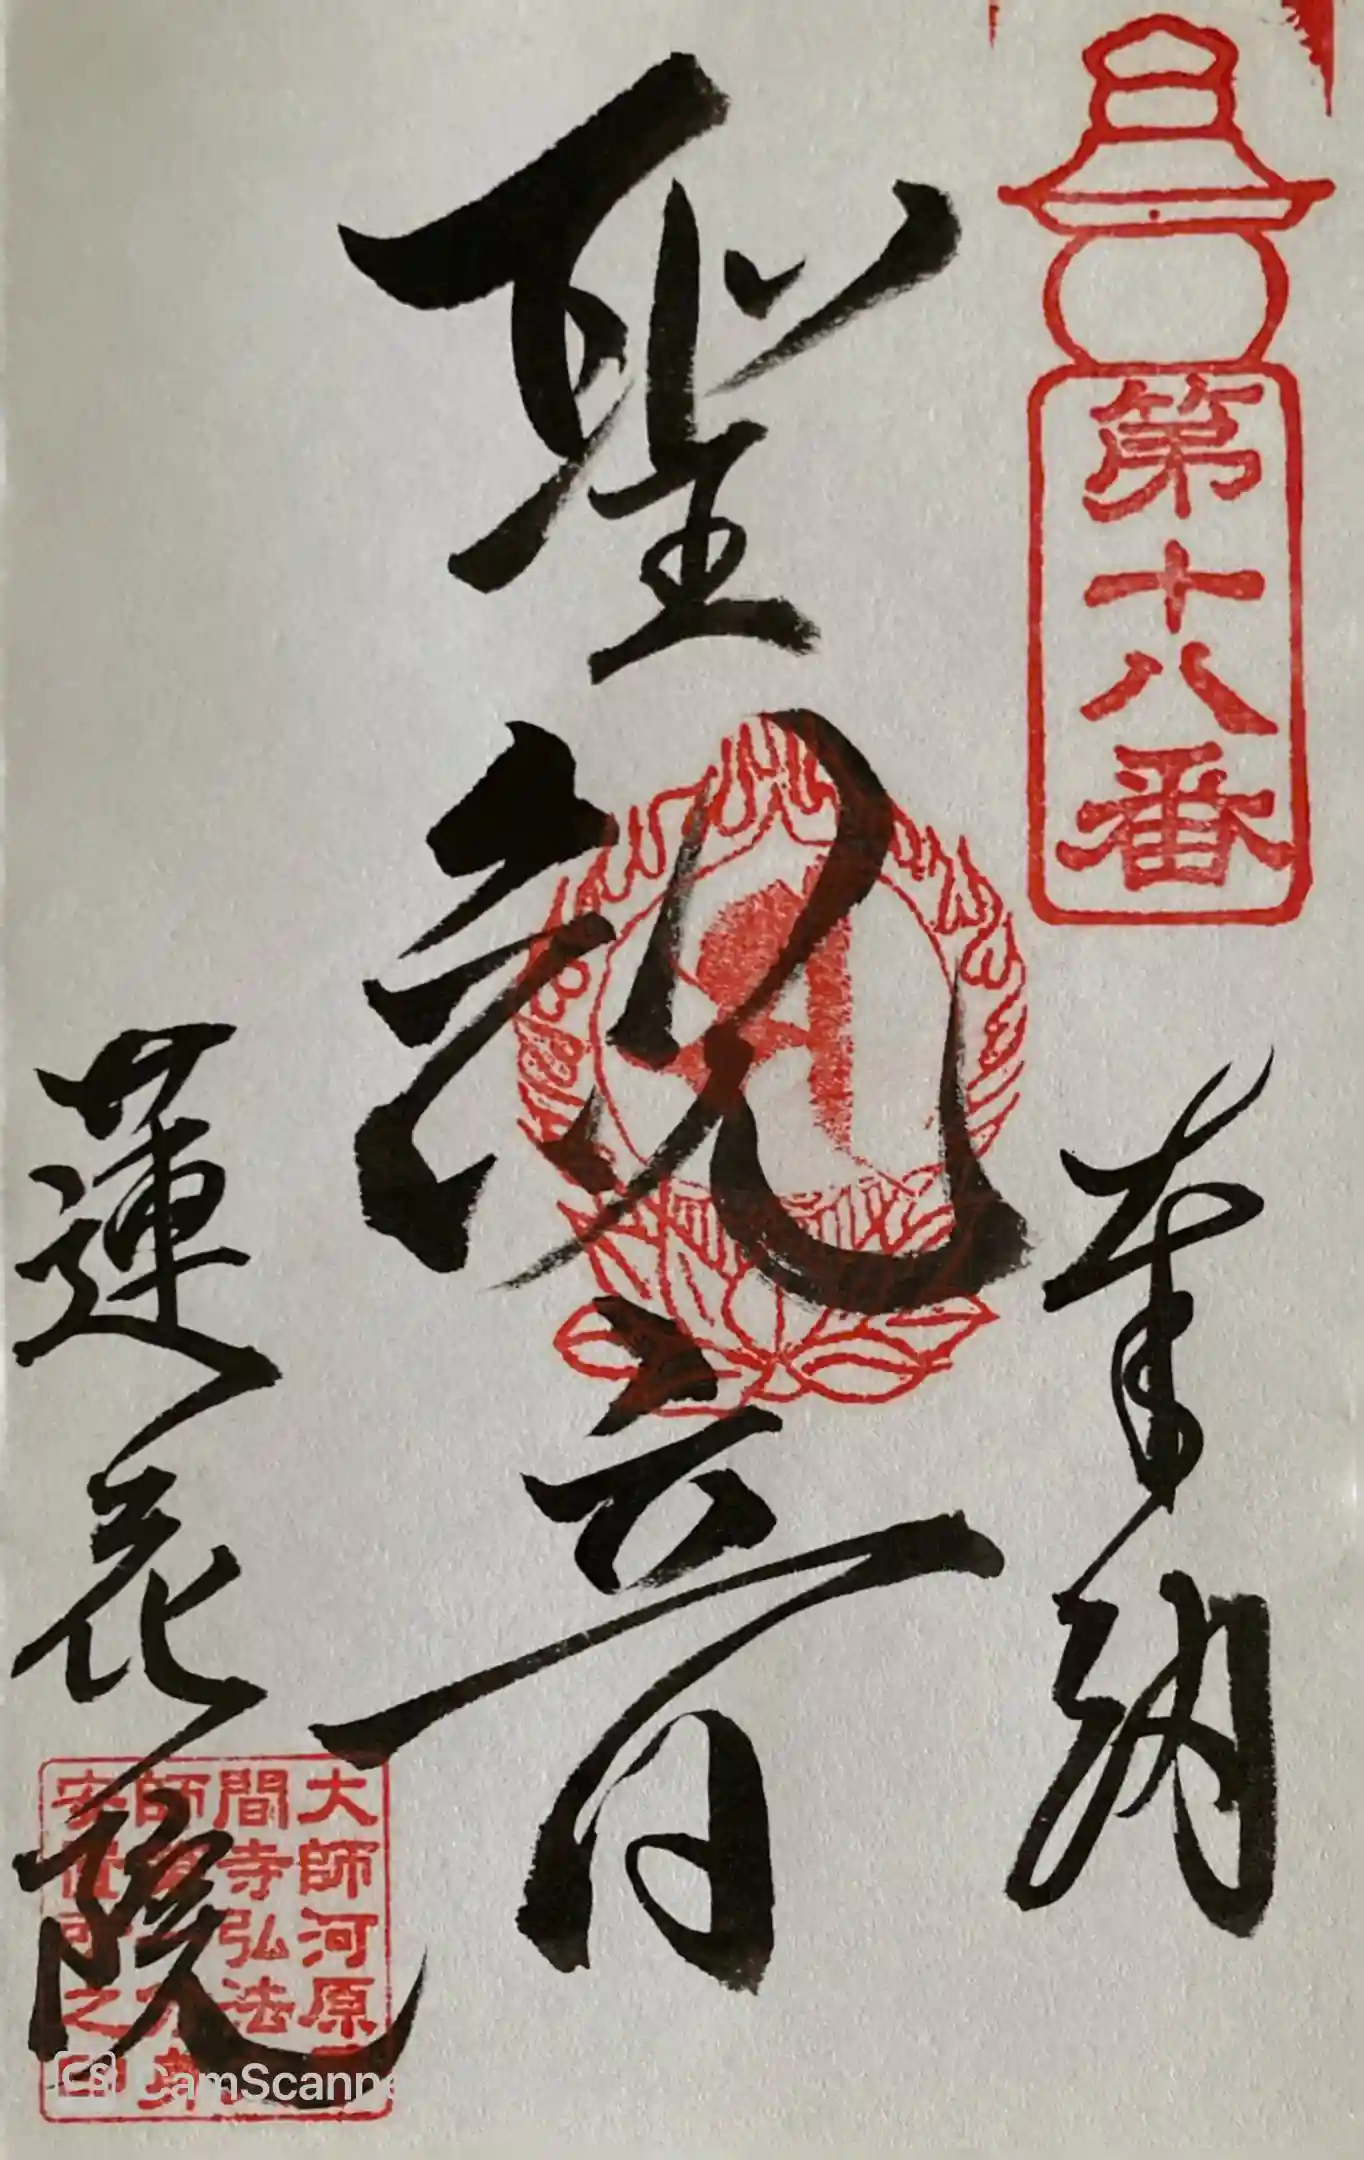 第十八番
奉納
聖観音
蓮花院
大師河原
間寺弘法
師
安
之
CamScanne